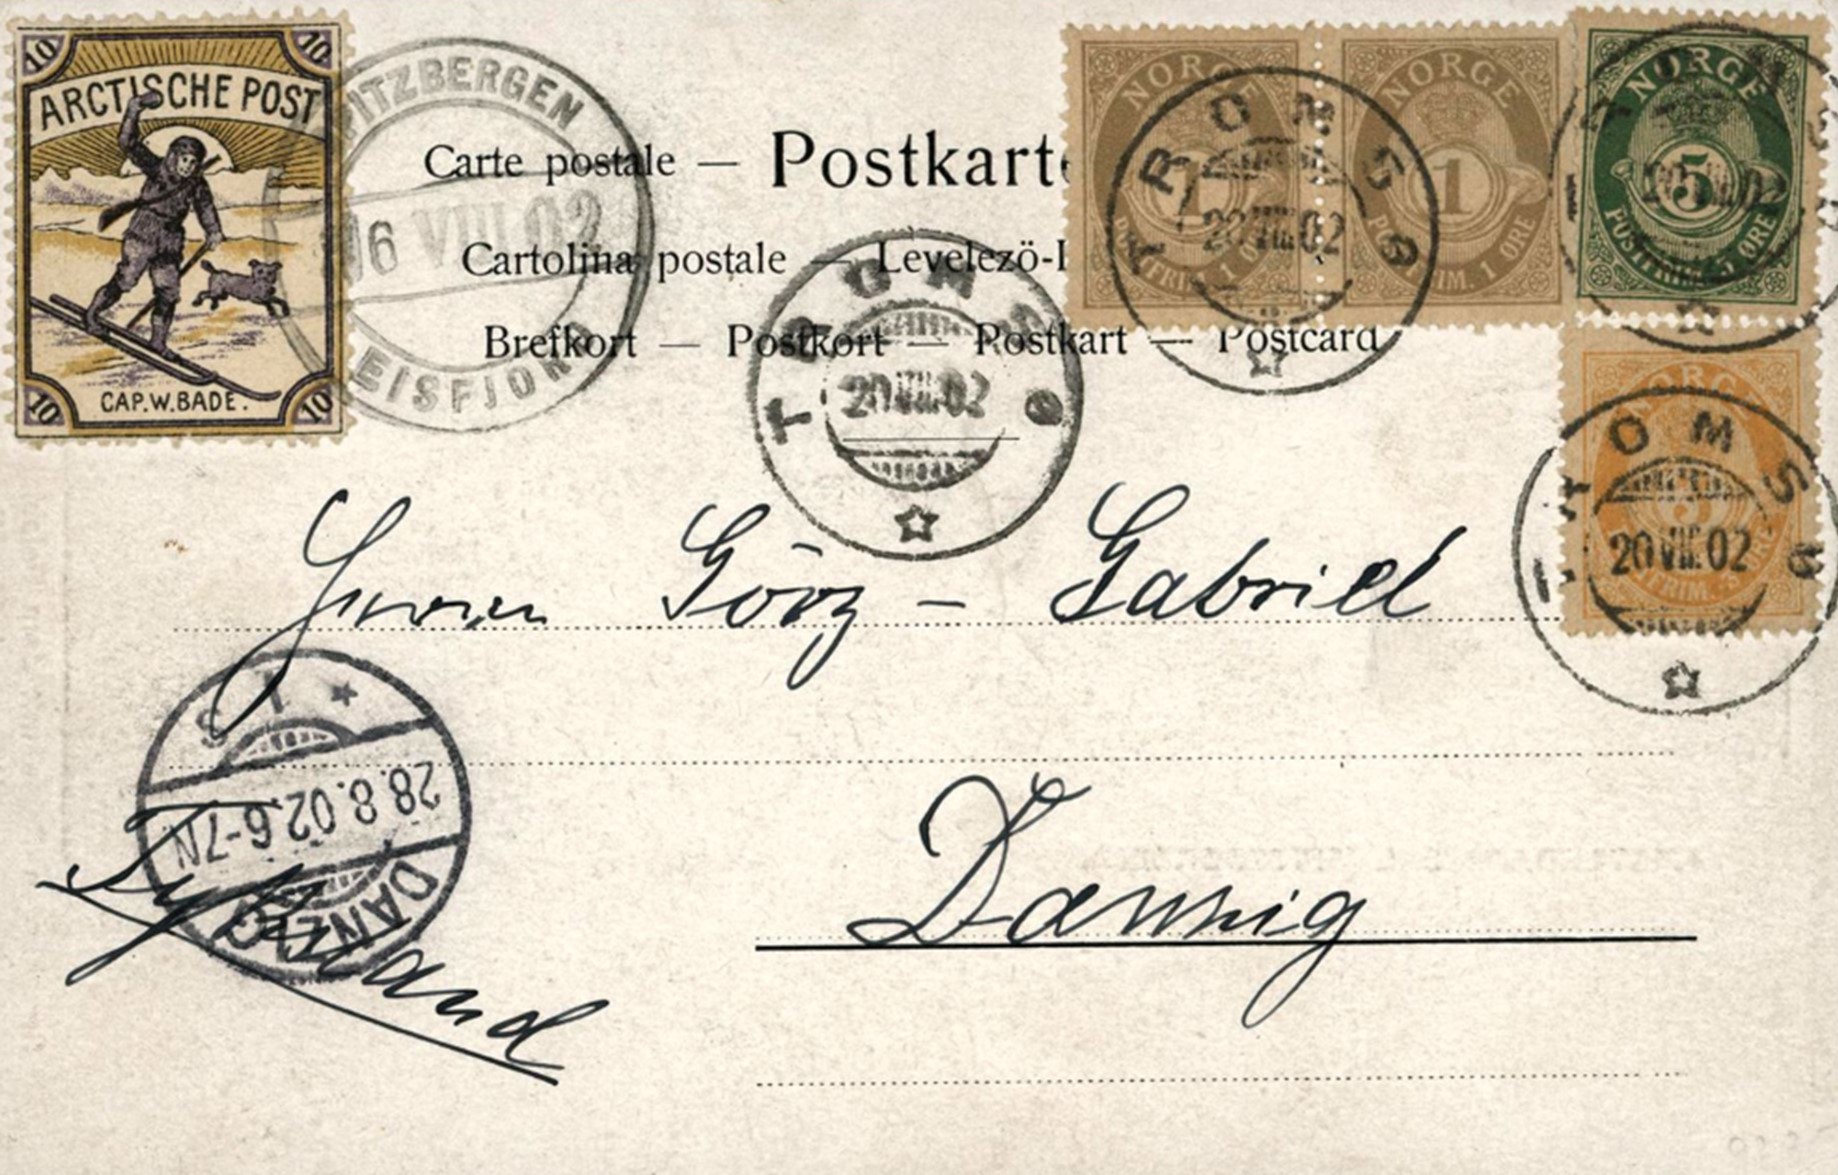 10 10
ARCTISCHE POST
CAP. W. BADE.
10 10
PITZBERGEN
16 VIII 02
EISFJORD
Carte postale — Postkarte
Cartolina postale — Levelezö-l
Brefkort — Postkort — Postkart — Postcard
NORGE
1
POSTFRIM. 1 ORE
NORGE
1
POSTFRIM. 1 ORE
NORGE
5
POSTFRIM. 5 ORE
NORGE
3
POSTFRIM. 3 ORE
TROMSØ
20 VIII 02
TROMSØ
20 VIII 02
TROMSØ
20 VIII 02
TROMSØ
20 VIII 02
Herrn Görz - Gabriel
Danzig
* 1 S
28.8.02.6-7N
DANZIG